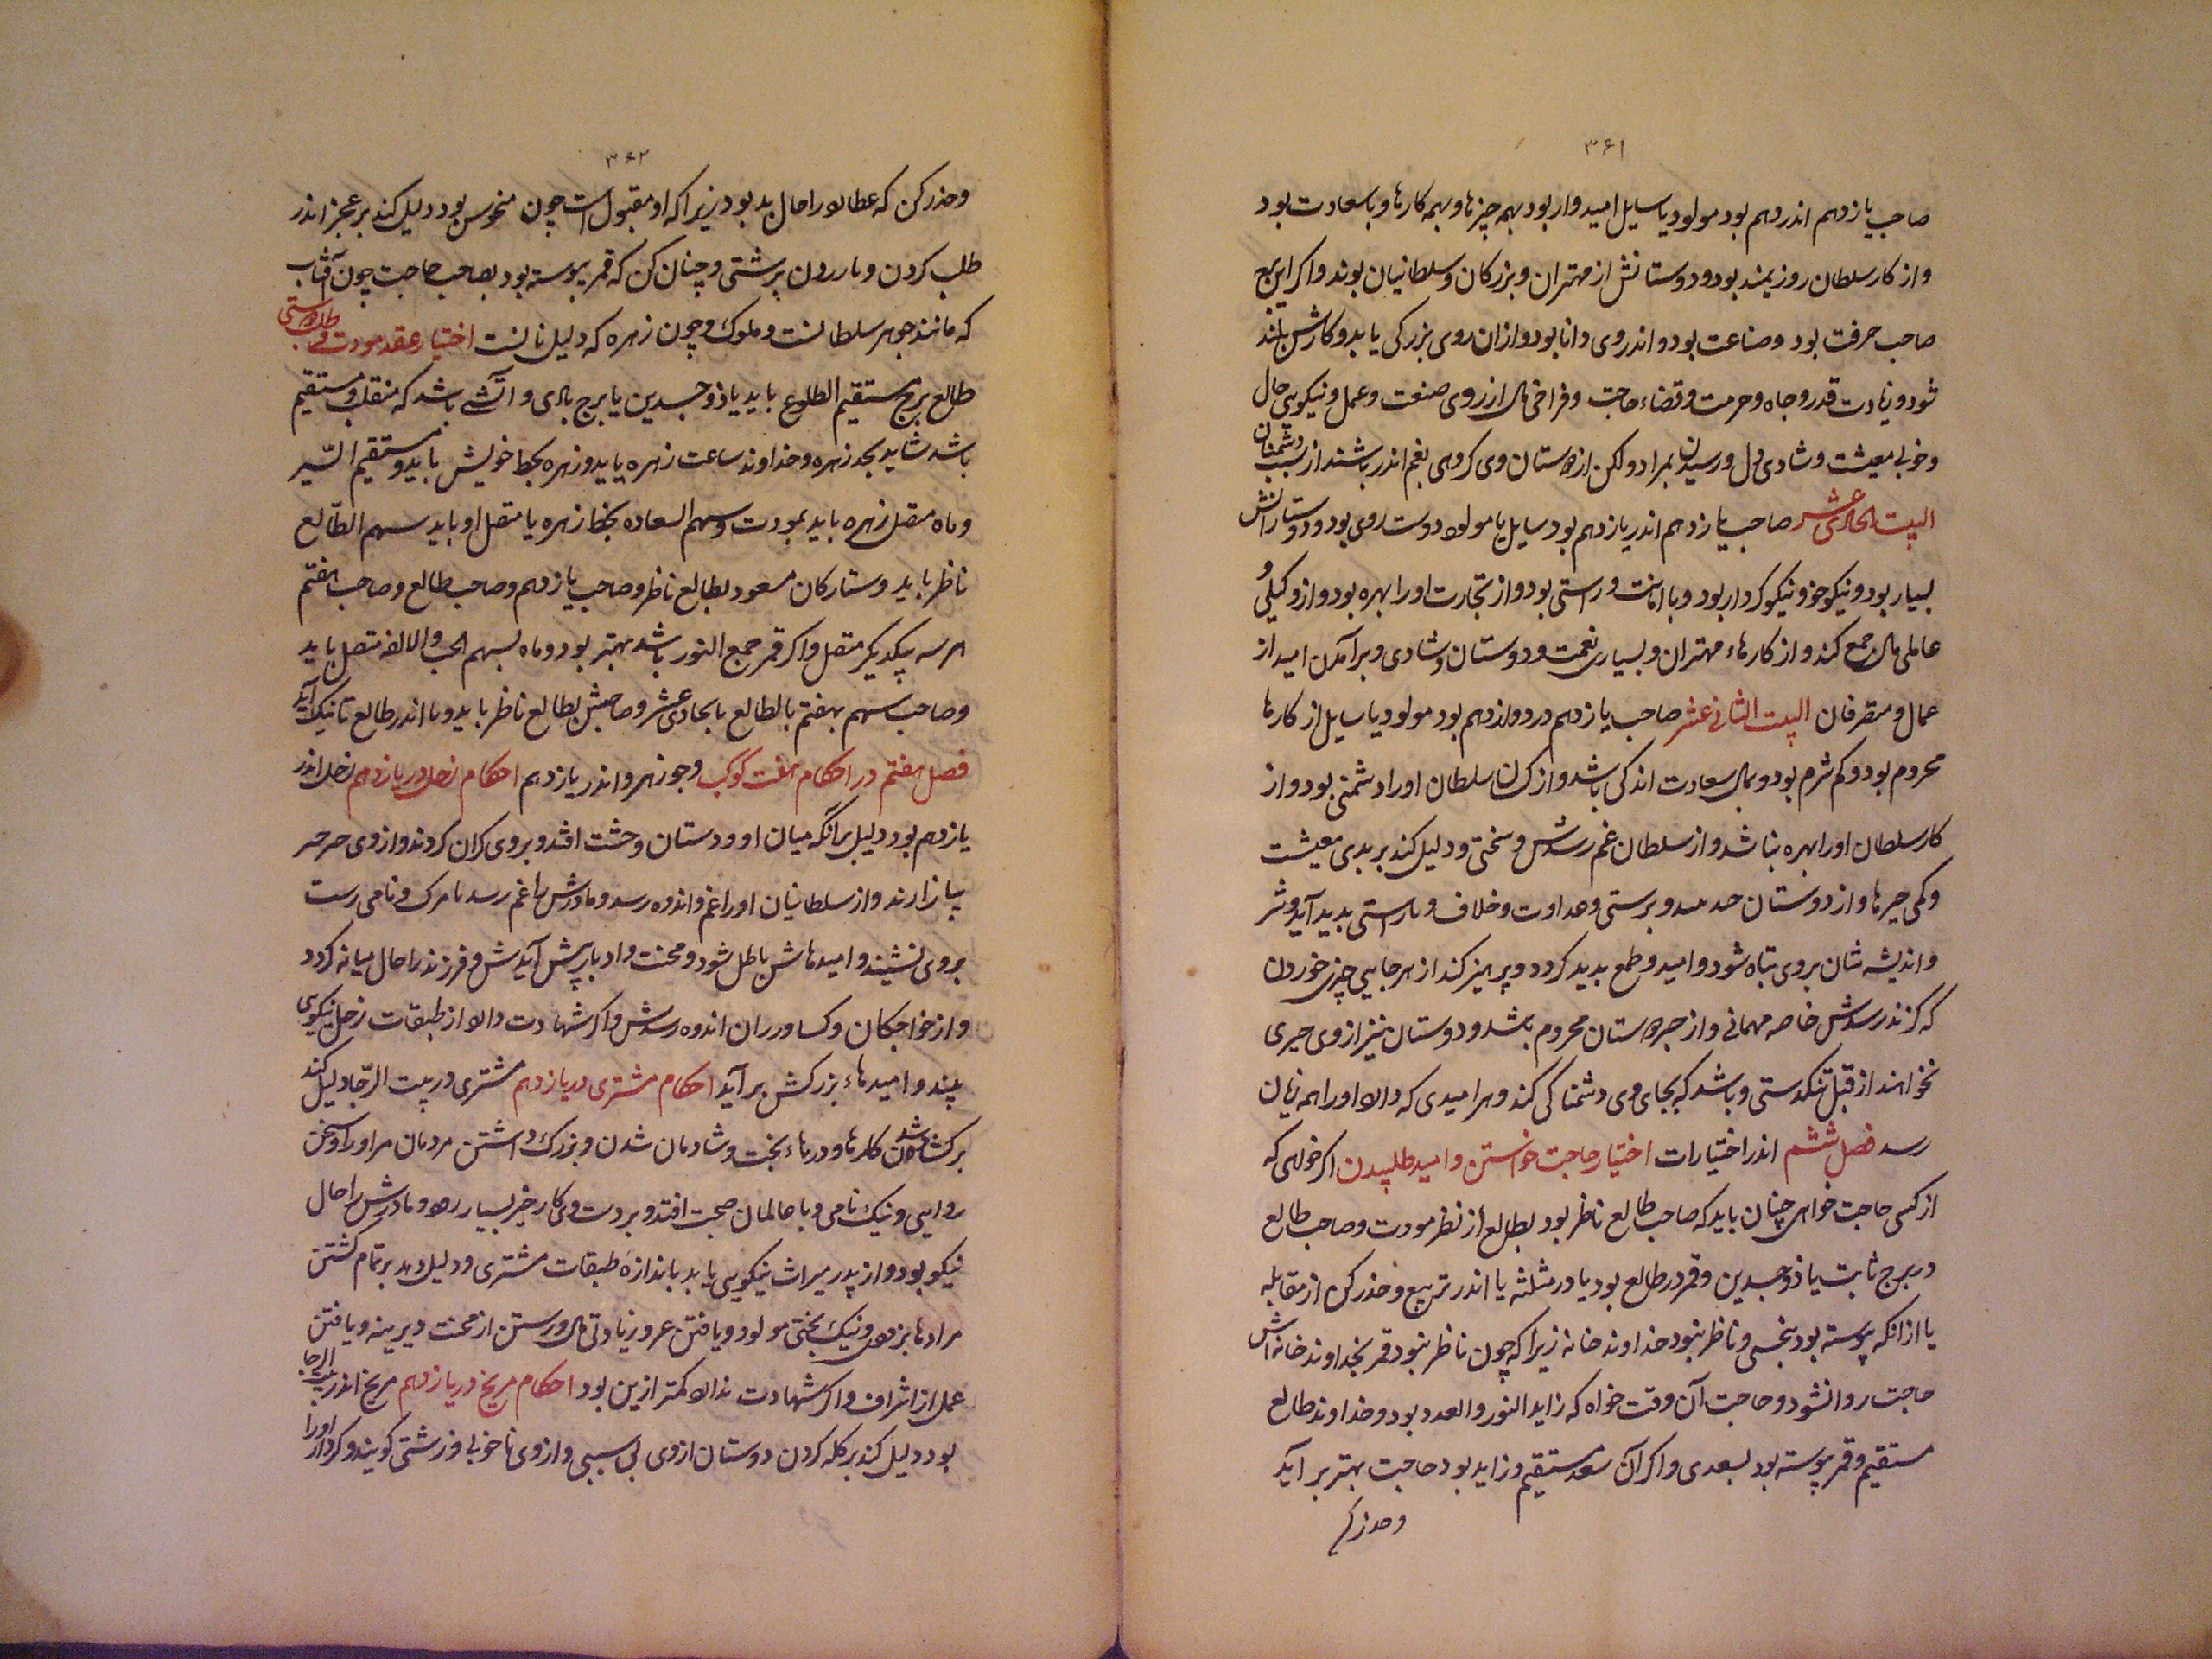 ۳۶۱
صاحب یازدهم اندر دهم بود مولود یا سایل امیدوار بود بهمه چیزها و بهمه کارها و با سعادت بود
و از کار سلطان روزیمند بود و دوستانش از مهتران و بزرکان و سلطانیان بوند و اکر این برج
صاحب حرفت بود و صناعت بود و اندر وی دانا بود و از ان روی بزرکی یابد و کارش بلند
شود و زیادت قدر و جاه و حرمت و قضاء حاجت و فراخی مال از روی صنعت و عمل و نیکویی حال
و خوبی معیشت و شادی دل و رسیدن بمراد و لکن از دوستان وی کروهی بغم اندر باشند از سبب دشمنان
البیت الحادی عشر صاحب یازدهم اندر یازدهم بود سایل یا مولود دوست روی بود و دوستانش
بسیار بود و نیکوخو و نیکو کردار بود و با امانت و راستی بود و از تجارت او را بهره بود و از وکیلی و
عاملی مال جمع کند و از کارهاء مهتران و بسیاری نعمت و دوستان و شادی و برآمدن امید از
عمال و متصرفان البیت الثانی عشر صاحب یازدهم در دوازدهم بود مولود یا سایل از کارها
محروم بود و کم شرم بود و بمال سعادت اندکی باشد و از کسان سلطان او را دشمنی بود و از
کار سلطان او را بهره نباشد و از سلطان غم رسدش و سختی و دلیل کند بر بدی معیشت
و کمی چیزها و از دوستان و عداوت و خلاف و ناراستی بدید آید و شر
و اندیشه شان بروی تباه شود و امید و طمع بدید کردد و پرهیز کند از هر جایی چیزی خوردن
که کزند رسدش خاصه مهمانی و از دوستان محروم باشد و دوستان نیز از وی چیزی
نخواهند از قبل تنکدستی و باشد که بجای وی دشمناکی کند و هر امیدی که دارد او را همه زیان
رسد فصل ششم اندر اختیارات اختیار حاجت خواستن و امید طلبیدن اکر خواهی که
از کسی حاجت خواهی چنان باید که صاحب طالع ناظر بود بطالع از نظر مودت و صاحب طالع
در برج ثابت یا ذوجسدین و قمر در طالع بود یا در مثلثه یا اندر تربیع و حذر کن از مقابله
یا از انکه پیوسته بود بنحسی و ناظر نبود خداوند خانه زیرا که چون ناظر نبود قمر بخداوند خانه اش
حاجت روا نشود و حاجت آن وقت خواه که زاید النور و العدد بود و خداوند طالع
مستقیم و قمر پیوسته بود بسعدی و اکر آن سعد مستقیم و زاید بود حاجت بهتر برآید
و حذر کن
۳۶۲
و حذر کن که عطارد را حال بد بود زیرا که او مقبول است چون منحوس بود دلیل کند بر عجز اندر
طلب کردن و بازردن بزشتی و چنان کن که قمر پیوسته بود بصاحب حاجت چون آفتاب
که مانند جوهر سلطانست و ملوک و چون زهره که دلیل زنانست اختیار عقد مودت و طلب دوستی
طالع برج مستقیم الطلوع باید یا ذوجسدین یا برج بادی و آتشی باشد که منقلب و مستقیم
باشد شاید بحد زهره و خداوند ساعت زهره باید و زهره بحظ خویش باید و مستقیم السّیر
و ماه متصل زهره باید بمودت و سهم السعاده بحظ زهره یا متصل او باید سهم الطّالع
ناظر باید و ستارکان مسعود بطالع ناظر و صاحب یازدهم و صاحب طالع و صاحب هفتم
هر سه بیکدیکر متصل و اکر قمر جمع النور باشد بهتر بود و ماه بسهم الحب و الالفه متصل باید
و صاحب سهم بهفتم یا لطالع یا بحادی عشر و صاحبش بطالع ناظر باید و یا اندر طالع تا نیک آید
فصل هفتم در احکام هفت کوکب و جوزهر و اندر یازدهم احکام زحل در یازدهم زحل اندر
یازدهم بود دلیل بر انکه میان او و دوستان وحشت افتد و بروی کران کردند و از وی
بیازارند و از سلطانیان او را غم و اندوه رسد و مادرش را غم رسد یا مرک و نامی زشت
بروی نشیند و امیدهاش باطل شود و محنت و ادبار پیش آیدش و فرزند را حال میانه کردد
و از خواجکان و کساورزان اندوه رسدش و اکر شهادت دارد از طبقات زحل نیکوی
بیند و امیدهاء بزرکش برآید احکام مشتری در یازدهم مشتری در بیت الرّجا دلیل کند
بر کشاده شدن کارها و درهاء بخت و شادمان شدن و بزرک داشتن مردمان مر او را و سخن
روایی و نیک نامی و با عالمان صحبت افتد و بر دست وی کار خیر بسیار رود و مادرش را حال
نیکو بود و از پدر میراث نیکویی یابد باندازه طبقات مشتری و دلیل دهد بر تمام کشتن
مرادها بزودی و نیک بختی مولود و یافتن عز و زیادتی مال و رستن از محنت دیرینه و یافتن
عمل از اشراف و اکر شهادت ندارد کمتر ازین بود احکام مریخ در یازدهم مریخ اندر بیت الرجا
بود دلیل کند بر کله کردن دوستان از وی بی سببی و از وی ناخوبی و زشتی کویند و کردار او را